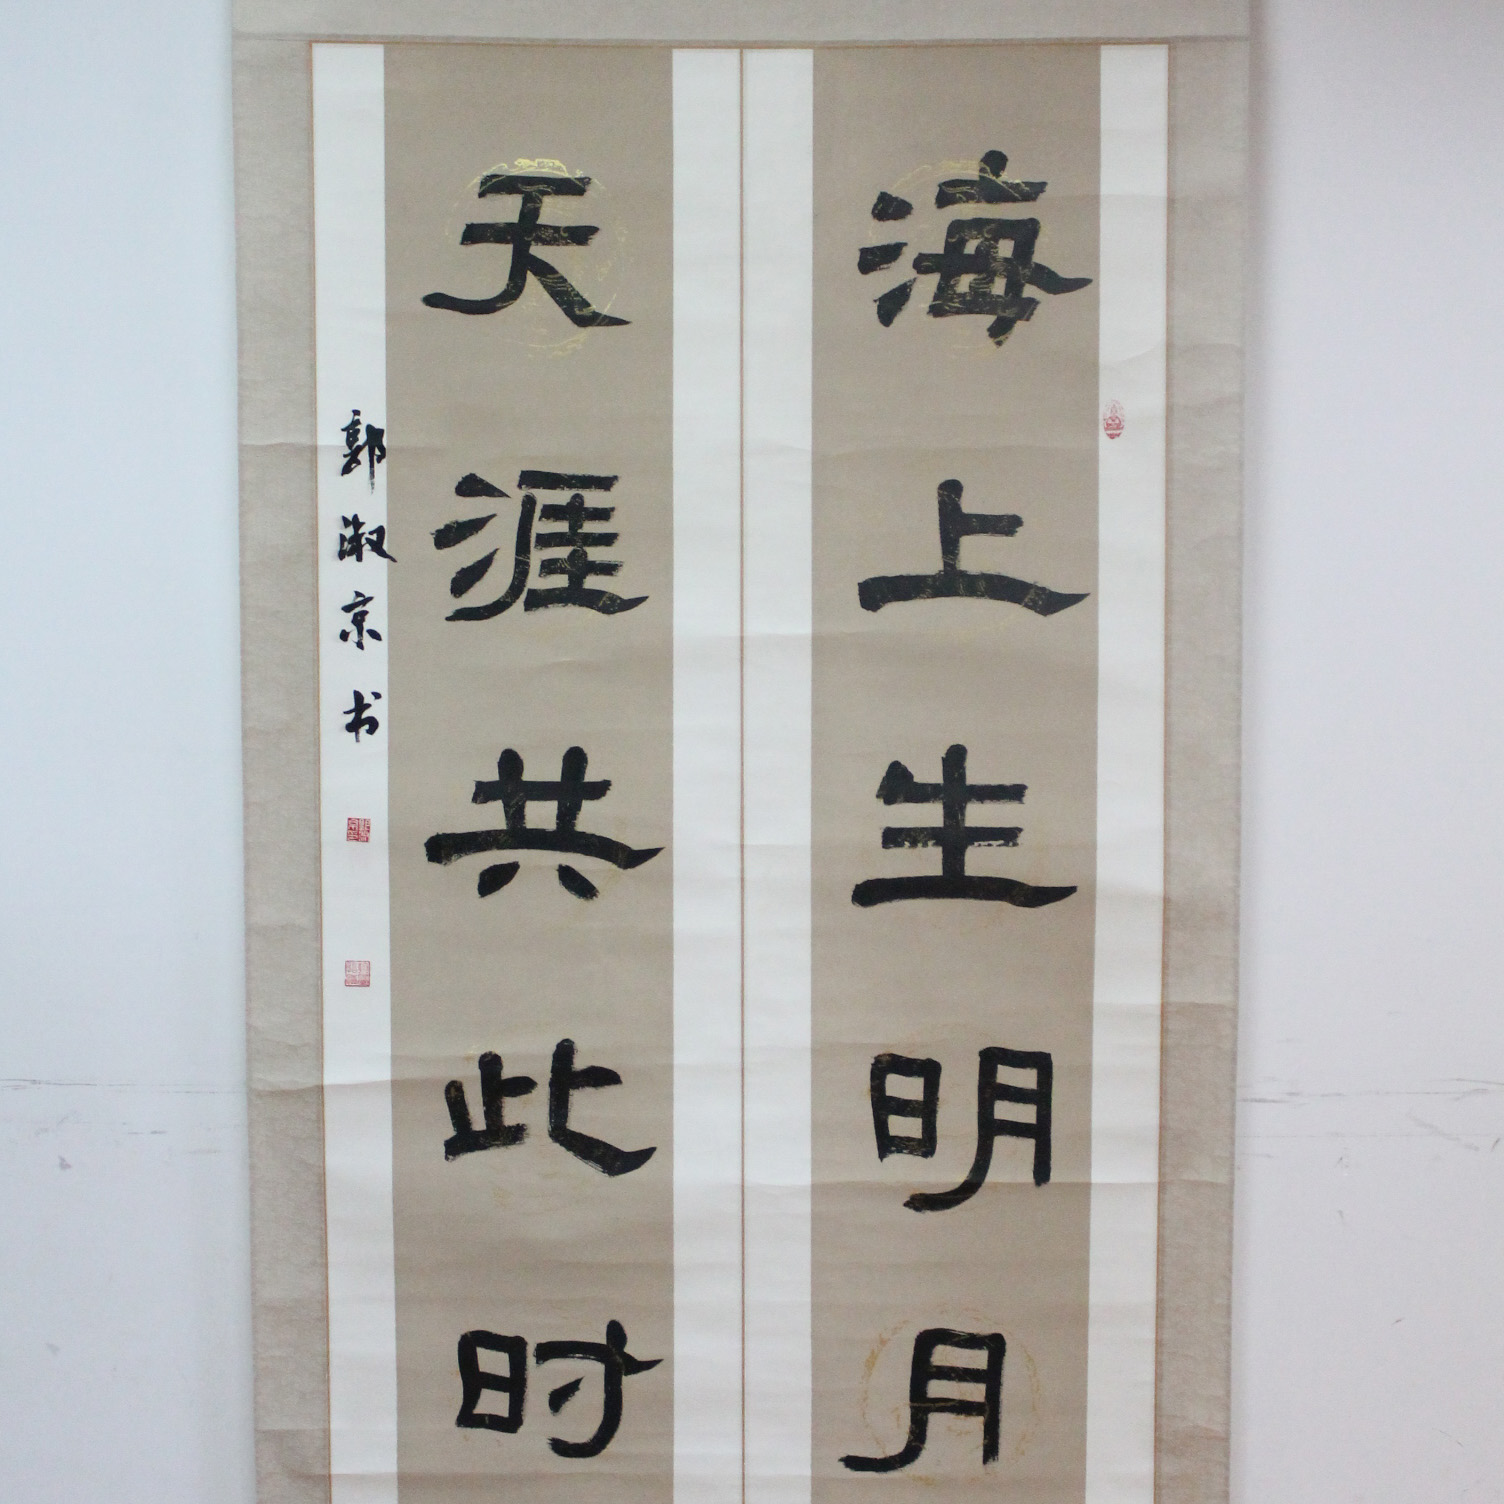 海上生明月
天涯共此时
郭淑京书